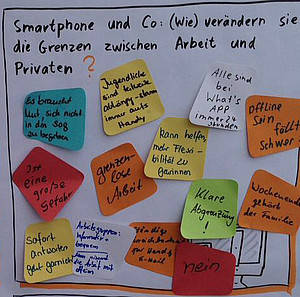 Smartphone und Co: (Wie) verändern sie
die Grenzen zwischen Arbeit und
Privaten ?
Es braucht
Mut, sich nicht
in den Sog
zu begeben
Jugendliche
sind teilweise
abhängig
immer aufs
Handy
Alle sind
bei
What's
APP
immer 24
Stunden
Offline
Sein
fällt
Schwer
Ist
eine
große
Gefahr
grenzen-
lose
Arbeit
kann helfen,
mehr Flexi-
bilität zu
gewinnen
Klare
Abgrenzung
!
Wochenende
gehört
der Familie
Sofort
antworten
geht garnicht
Arbeitsgruppen:
bequem
die Arbeit mit
Ständige
Erreichbarkeit
per Handy
E-Mail
nein